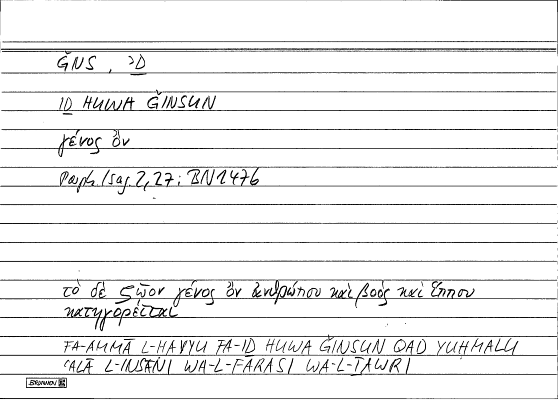 ǦNS , ʾḎ
IḎ HUWA ǦINSUN
γένος ὄν
Porph. Isag. 2,27; BN1476
τὸ δὲ ζῷον γένος ὂν ἀνθρώπου καὶ βοὸς καὶ ἵππου
κατηγορεῖται
FA-AMMĀ L-ḤAYYU FA-IḎ HUWA ǦINSUN QAD YUḤMALU
ʿALĀ L-INSĀNI WA-L-FARASI WA-L-ṮAWRI
BRUNNEN